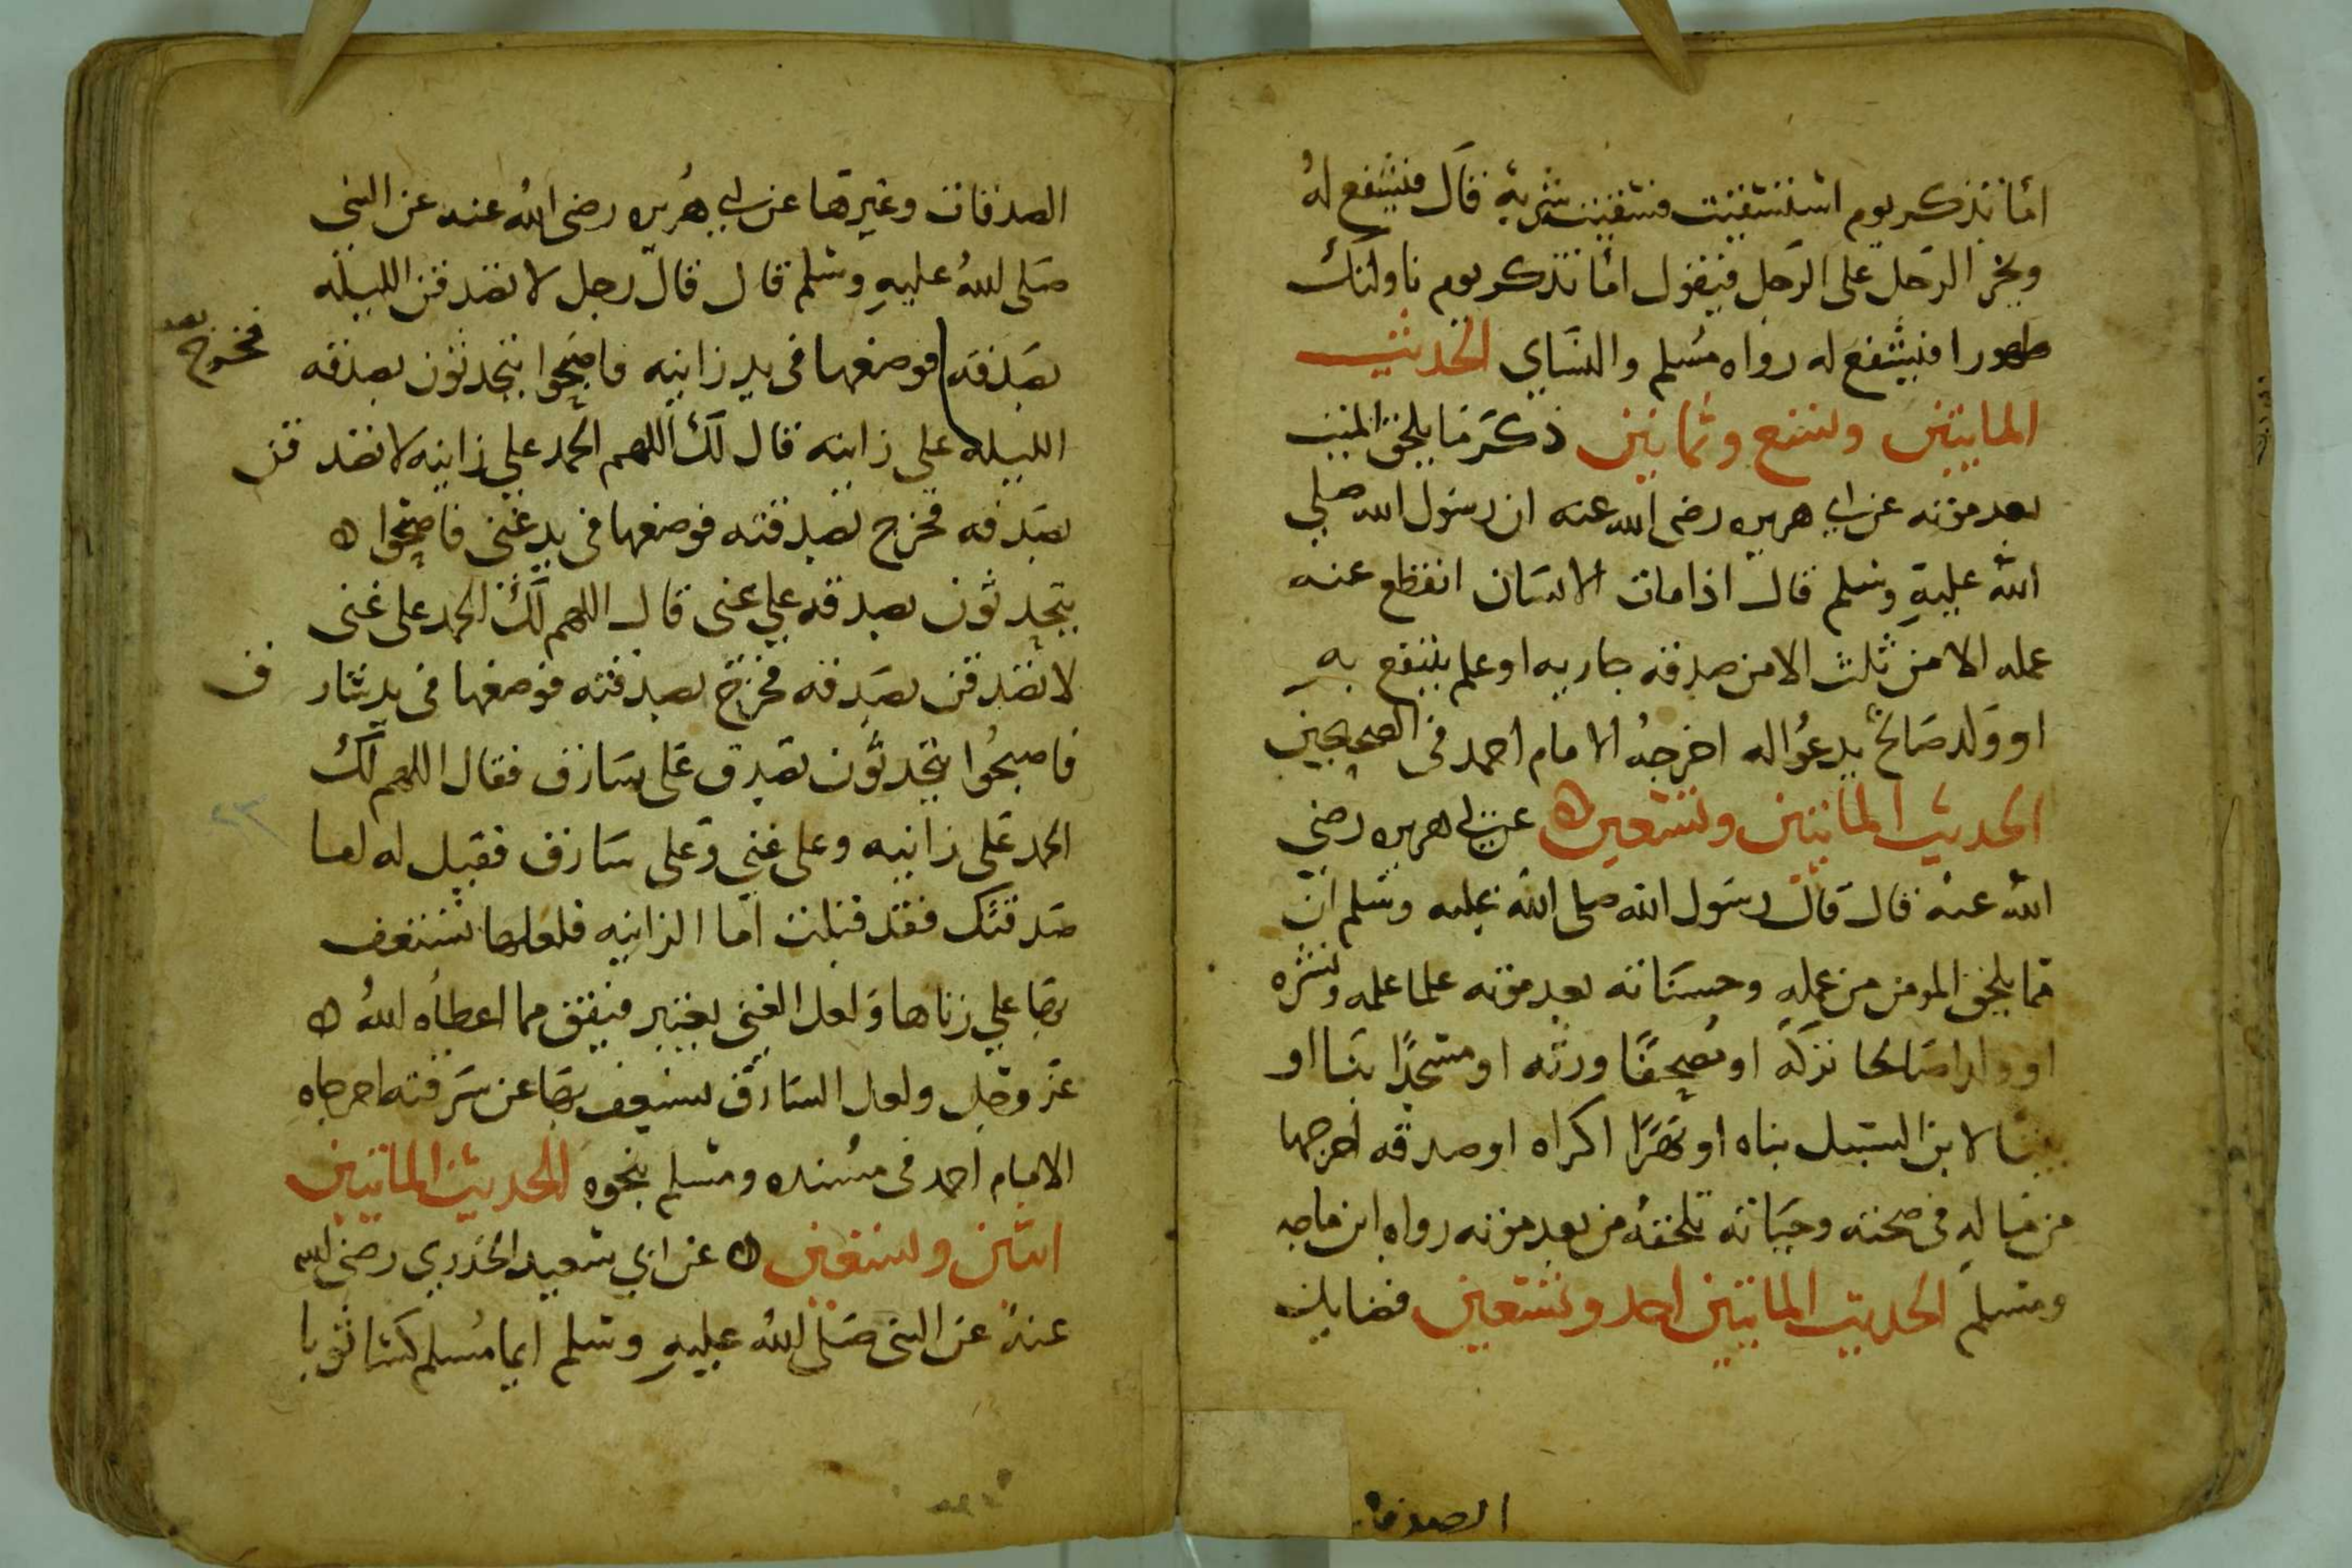 اما تذكر يوم استسقيت فسقيتك شربة قال فيشفع له
ويمر الرجل على الرجل فيقول اما تذكر يوم ناولتك
طهورا فيشفع له رواه مسلم والنساي الحديث
المايتين وتسع وثمانين ذكر ما يلحق الميت
بعد موته عن ابي هريره رضي الله عنه ان رسول الله صلى
الله عليه وسلم قال اذا مات الانسان انقطع عنه
عمله الا من ثلث الا من صدقه جاريه او علم ينتفع به
او ولد صالح يدعوا له اخرجه الامام احمد في الصحيحين
الحديث المايتين وتسعين عن ابي هريره رضي
الله عنه قال قال رسول الله صلى الله عليه وسلم ان
مما يلحق المومن من عمله وحسناته بعد موته علما علمه ونشره
او ولدا صالحا تركه او مصحفا ورثه او مسجدا بناا او
بيتا لابن السبيل بناه او نهرا اكراه او صدقه اخرجها
من ماله في صحته وحياته تلحقه من بعد موته رواه ابن ماجه
ومسلم الحديث المايتين احد وتسعين فضايل
الصدقات
الصدقات وغيرها عن ابي هريره رضي الله عنه عن النبي
صلى الله عليه وسلم قال قال رجل لا تصدقن الليله
بصدقه فوضعها في يد زانيه فاصبحوا يتحدثون بصدقه
فخرج
الليله على زانيه قال لك اللهم الحمد على زانيه لا تصدقن
بصدقه فخرج بصدقته فوضعها في يد غني فاصبحوا ه
يتحدثون بصدقه على غني قال اللهم لك الحمد على غني
لا تصدقن بصدقه فخرج بصدقته فوضعها في يد سار
ق
فاصبحوا يتحدثون تصدق على سارق فقال اللهم لك
الحمد على زانيه وعلى غني وعلى سارق فقيل له اما
صدقتك فقد قبلت اما الزانيه فلعلها تستعف
بها على زناها ولعل الغني يعتبر فينفق مما اعطاه الله ه
عز وجل ولعل السارق يستعف بها عن سرقته اخرجاه
الامام احمد في مسنده ومسلم بنحوه الحديث المايتين
اثنين وتسعين ه عن ابي سعيد الخدري رضي الله
عنه عن النبي صلى الله عليه وسلم ايما مسلم كسا ثوبا